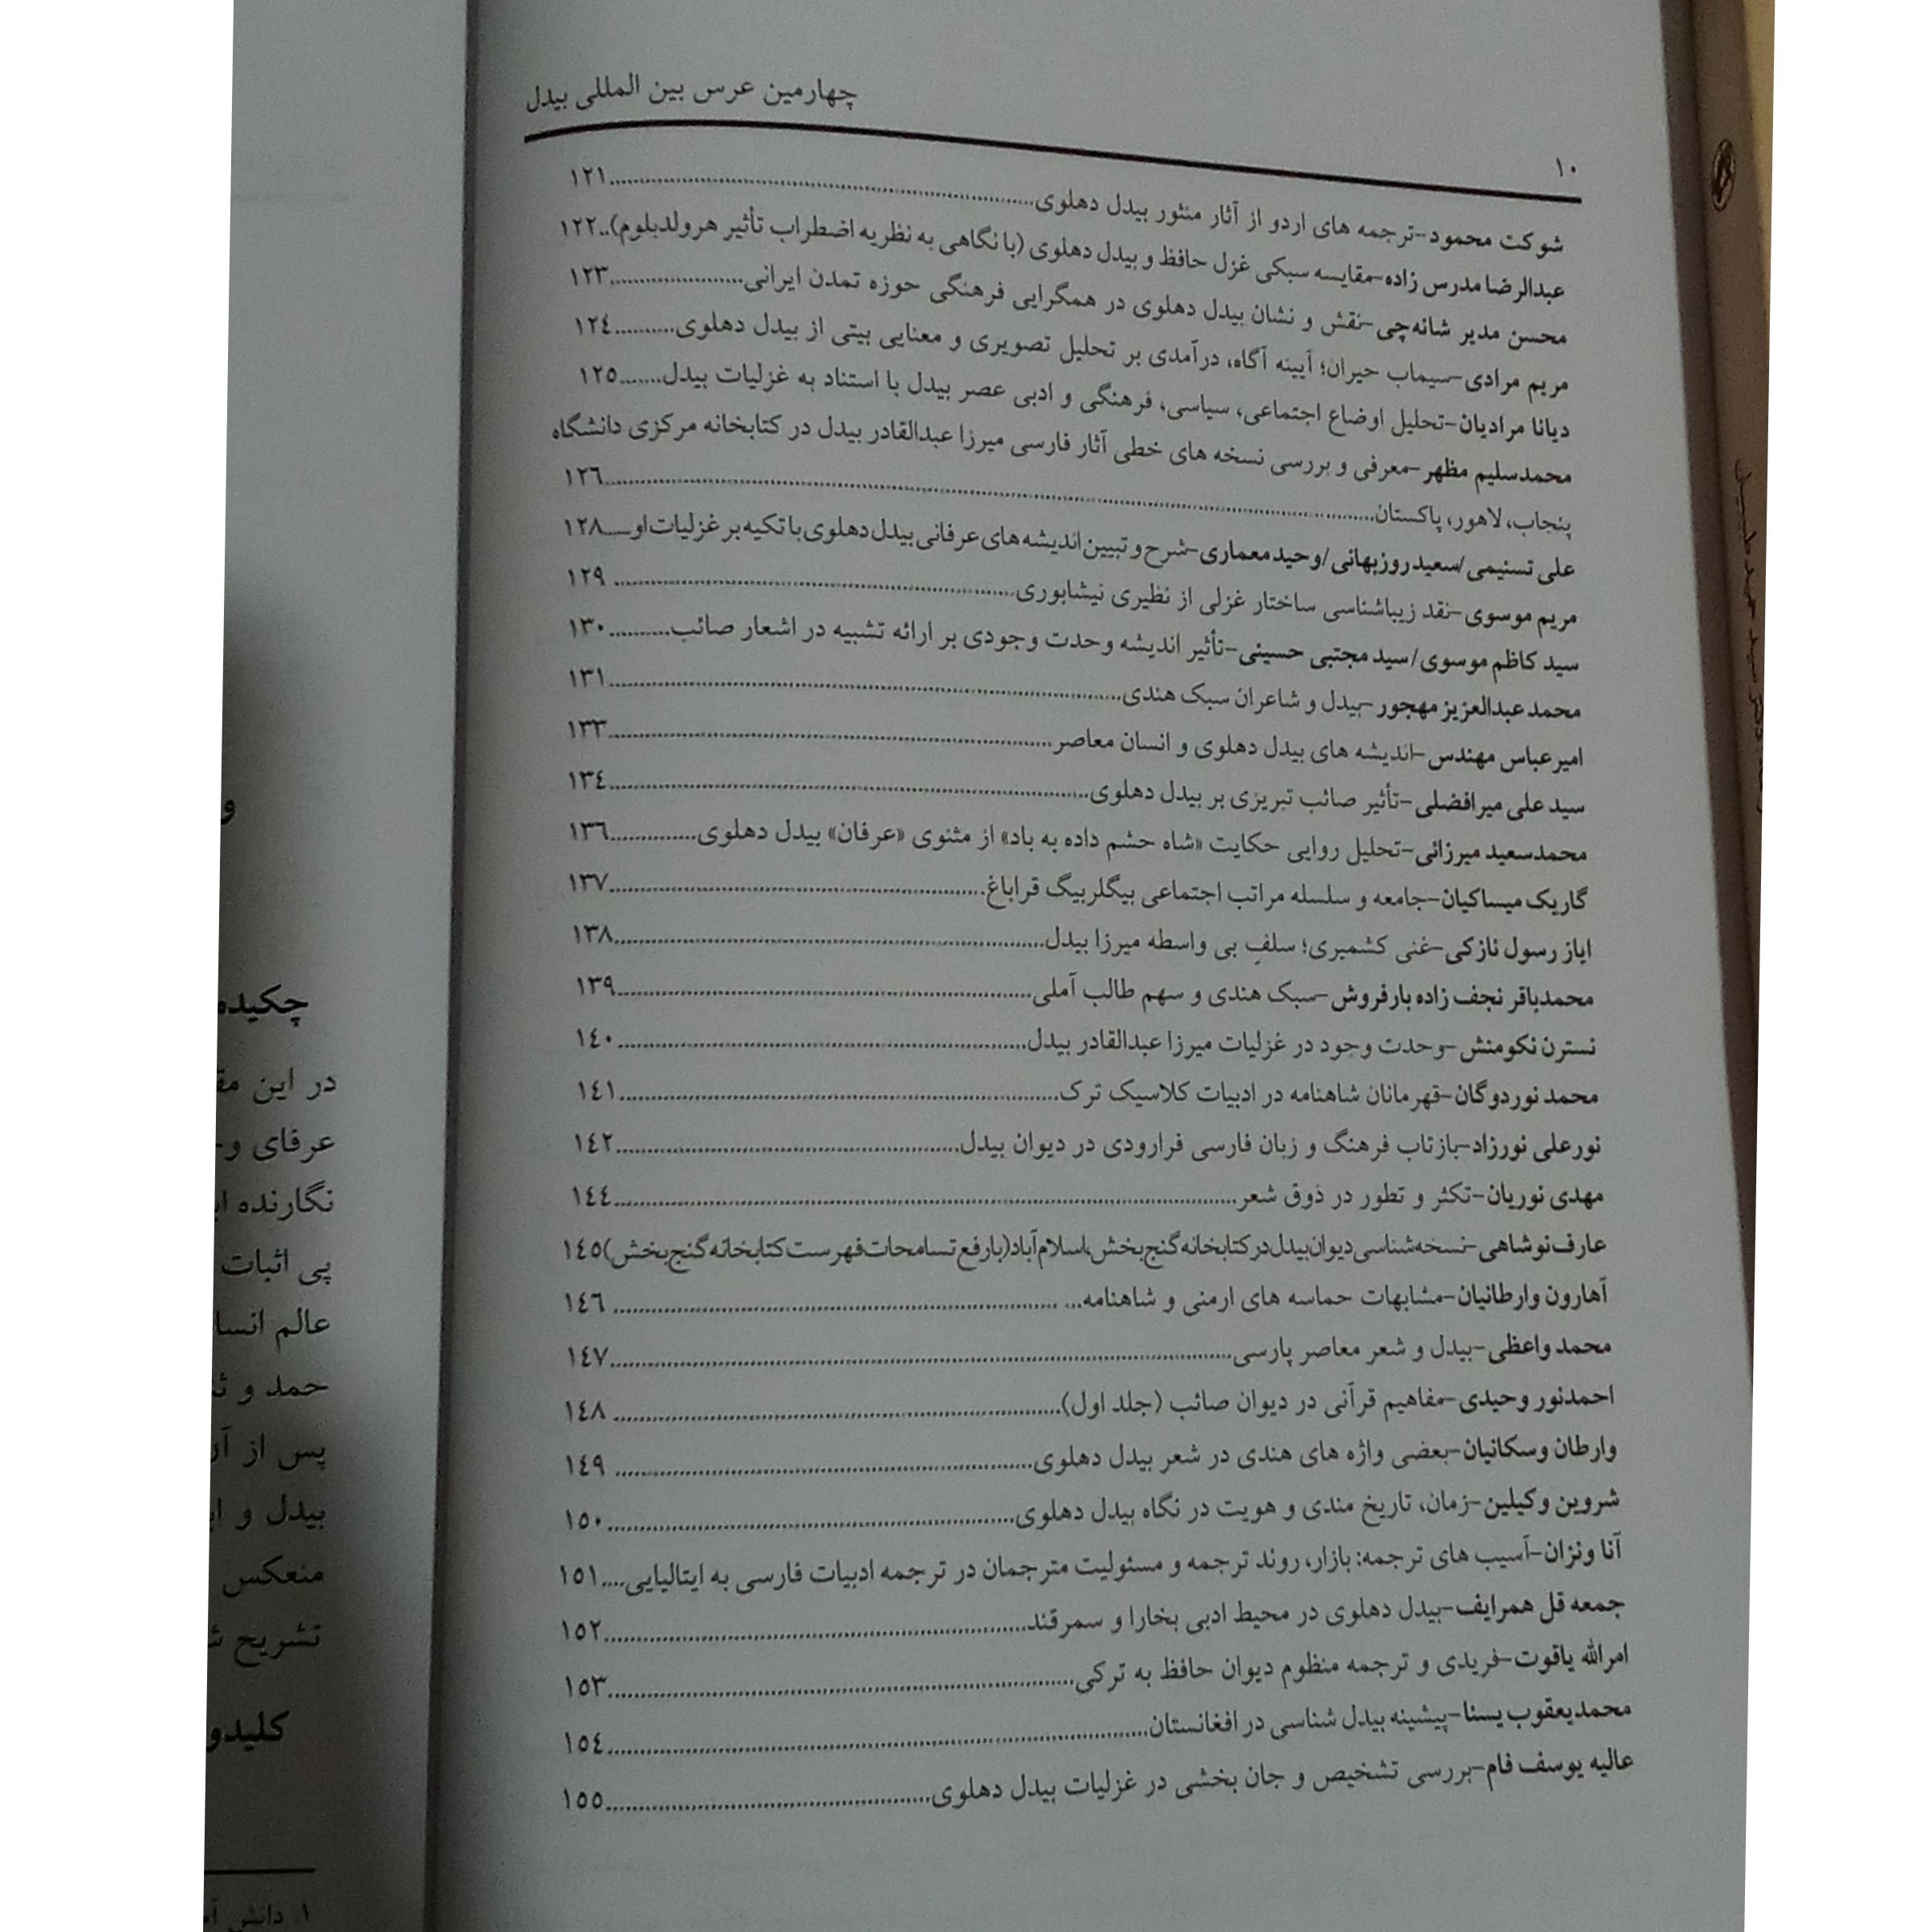 چهارمین عرس بین المللی بیدل
۱۰
شوکت محمود-ترجمه های اردو از آثار منثور بیدل دهلوی..........۱۲۱
عبدالرضا مدرس زاده-مقایسه سبکی غزل حافظ و بیدل دهلوی (با نگاهی به نظریه اضطراب تأثیر هرولدبلوم)..۱۲۲
محسن مدیر شانه‌چی-نقش و نشان بیدل دهلوی در همگرایی فرهنگی حوزه تمدن ایرانی..........۱۲۳
مریم مرادی-سیماب حیران؛ آیینه آگاه، درآمدی بر تحلیل تصویری و معنایی بیتی از بیدل دهلوی..........۱۲٤
دیانا مرادیان-تحلیل اوضاع اجتماعی، سیاسی، فرهنگی و ادبی عصر بیدل با استناد به غزلیات بیدل.......۱۲٥
محمدسلیم مظهر-معرفی و بررسی نسخه های خطی آثار فارسی میرزا عبدالقادر بیدل در کتابخانه مرکزی دانشگاه
پنجاب، لاهور، پاکستان..........۱۲٦
علی تسنیمی/سعید روزبهانی/وحید معماری-شرح و تبیین اندیشه های عرفانی بیدل دهلوی با تکیه بر غزلیات او.....۱۲۸
مریم موسوی-نقد زیباشناسی ساختار غزلی از نظیری نیشابوری..........۱۲۹
سید کاظم موسوی/سید مجتبی حسینی-تأثیر اندیشه وحدت وجودی بر ارائه تشبیه در اشعار صائب..........۱۳۰
محمد عبدالعزیز مهجور-بیدل و شاعران سبک هندی..........۱۳۱
امیرعباس مهندس-اندیشه های بیدل دهلوی و انسان معاصر..........۱۳۳
سید علی میرافضلی-تأثیر صائب تبریزی بر بیدل دهلوی..........۱۳٤
محمدسعید میرزائی-تحلیل روایی حکایت «شاه حشم داده به باد» از مثنوی «عرفان» بیدل دهلوی..........۱۳٦
گاریک میساکیان-جامعه و سلسله مراتب اجتماعی بیگلربیگ قراباغ..........۱۳۷
ایاز رسول نازکی-غنی کشمیری؛ سلفِ بی واسطه میرزا بیدل..........۱۳۸
محمدباقر نجف زاده بارفروش-سبک هندی و سهم طالب آملی..........۱۳۹
نسترن نکومنش-وحدت وجود در غزلیات میرزا عبدالقادر بیدل..........۱٤۰
محمد نوردوگان-قهرمانان شاهنامه در ادبیات کلاسیک ترک..........۱٤۱
نورعلی نورزاد-بازتاب فرهنگ و زبان فارسی فرارودی در دیوان بیدل..........۱٤۲
مهدی نوریان-تکثر و تطور در ذوق شعر..........۱٤٤
عارف نوشاهی-نسخه شناسی دیوان بیدل در کتابخانه گنج بخش، اسلام آباد (با رفع تسامحات فهرست کتابخانه گنج بخش)۱٤٥
آهارون وارطانیان-مشابهات حماسه های ارمنی و شاهنامه..........۱٤٦
محمد واعظی-بیدل و شعر معاصر پارسی..........۱٤۷
احمدنور وحیدی-مفاهیم قرآنی در دیوان صائب (جلد اول)..........۱٤۸
وارطان وسکانیان-بعضی واژه های هندی در شعر بیدل دهلوی..........۱٤۹
شروین وکیلین-زمان، تاریخ مندی و هویت در نگاه بیدل دهلوی..........۱٥۰
آنا ونزان-آسیب های ترجمه: بازار، روند ترجمه و مسئولیت مترجمان در ترجمه ادبیات فارسی به ایتالیایی....۱٥۱
جمعه قل همرایف-بیدل دهلوی در محیط ادبی بخارا و سمرقند..........۱٥۲
امرالله یاقوت-فریدی و ترجمه منظوم دیوان حافظ به ترکی..........۱٥۳
محمدیعقوب یسنا-پیشینه بیدل شناسی در افغانستان..........۱٥٤
عالیه یوسف فام-بررسی تشخیص و جان بخشی در غزلیات بیدل دهلوی..........۱٥٥
چکیده
در این
عرفای
نگارنده
پی اثبات
عالم
حمد و
پس از
بیدل و
منعکس
تشریح
۱. دانش